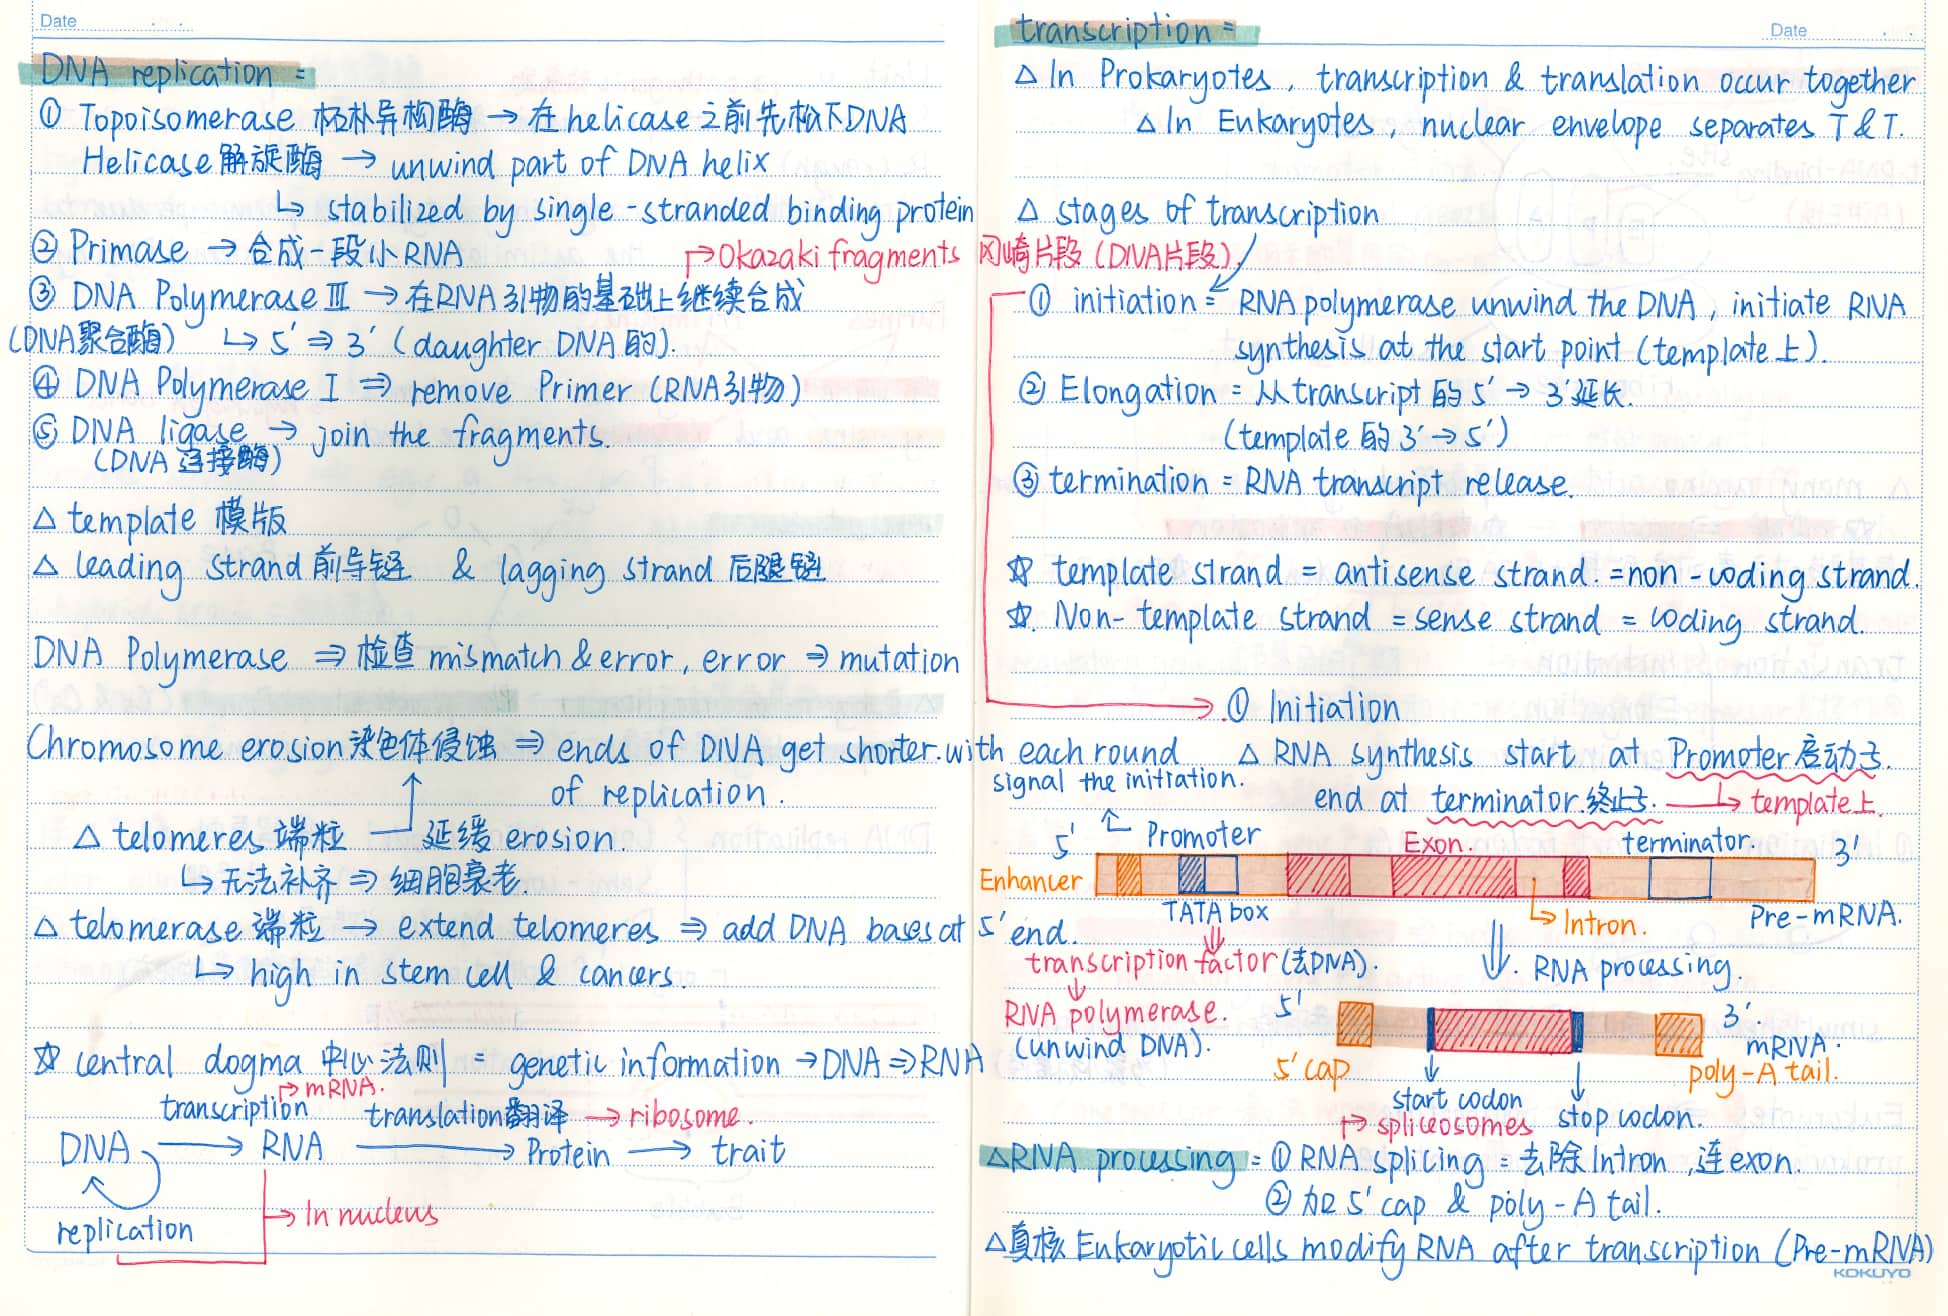 Date
DNA replication =
① Topoisomerase 拓朴异构酶 → 在helicase之前先松下DNA
Helicase解旋酶 → unwind part of DNA helix
↳ stabilized by single-stranded binding protein
② Primase → 合成一段小RNA
Okazaki fragments 冈崎片段 (DNA片段).
③ DNA Polymerase III → 在RNA引物的基础上继续合成
(DNA聚合酶) ↳ 5' ⇒ 3' (daughter DNA的).
④ DNA Polymerase I ⇒ remove Primer (RNA引物)
⑤ DNA ligase → join the fragments.
(DNA连接酶)
△ template 模版
△ leading strand前导链 & lagging strand 后随链
DNA Polymerase ⇒ 检查mismatch & error, error ⇒ mutation
Chromosome erosion染色体侵蚀 ⇒ ends of DNA get shorter with each round
of replication.
△ telomeres 端粒 → 延缓erosion.
↳ 无法补齐 ⇒ 细胞衰老.
△ telomerase 端粒 → extend telomeres ⇒ add DNA bases at 5' end.
↳ high in stem cell & cancers.
☆ central dogma 中心法则 = genetic information → DNA ⇒ RNA
→ mRNA.
transcription translation翻译 → ribosome.
DNA → RNA → Protein → trait
replication
→ In nucleus
transcription =
Date
△ In Prokaryotes, transcription & translation occur together
△ In Eukaryotes, nuclear envelope separates T & T.
△ stages of transcription
① initiation = RNA polymerase unwind the DNA, initiate RNA
synthesis at the start point (template上).
② Elongation = 从transcript的5' → 3'延长.
(template的3' → 5')
③ termination = RNA transcript release.
☆ template strand = antisense strand. = non-coding strand.
☆. Non-template strand = sense strand = coding strand.
→ ① Initiation
△ RNA synthesis start at Promoter启动子.
end at terminator.终止子. ↳ template上.
signal the initiation.
5' Promoter Exon. terminator. 3'
Enhancer
TATA box ↳ Intron. Pre-mRNA.
transcription factor (去DNA). ⇓. RNA processing.
RNA polymerase.
(unwind DNA).
5' 3'
mRNA.
5' cap poly-A tail.
start codon stop codon.
↱ spliceosomes
△RNA processing = ① RNA splicing = 去除Intron, 连exon.
② 加5' cap & poly-A tail.
△真核Eukaryotic cells modify RNA after transcription (Pre-mRNA)
KOKUYO